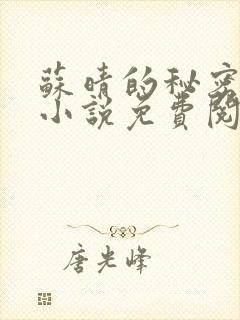 蘇晴的秘密
小説免費閱
唐光峰